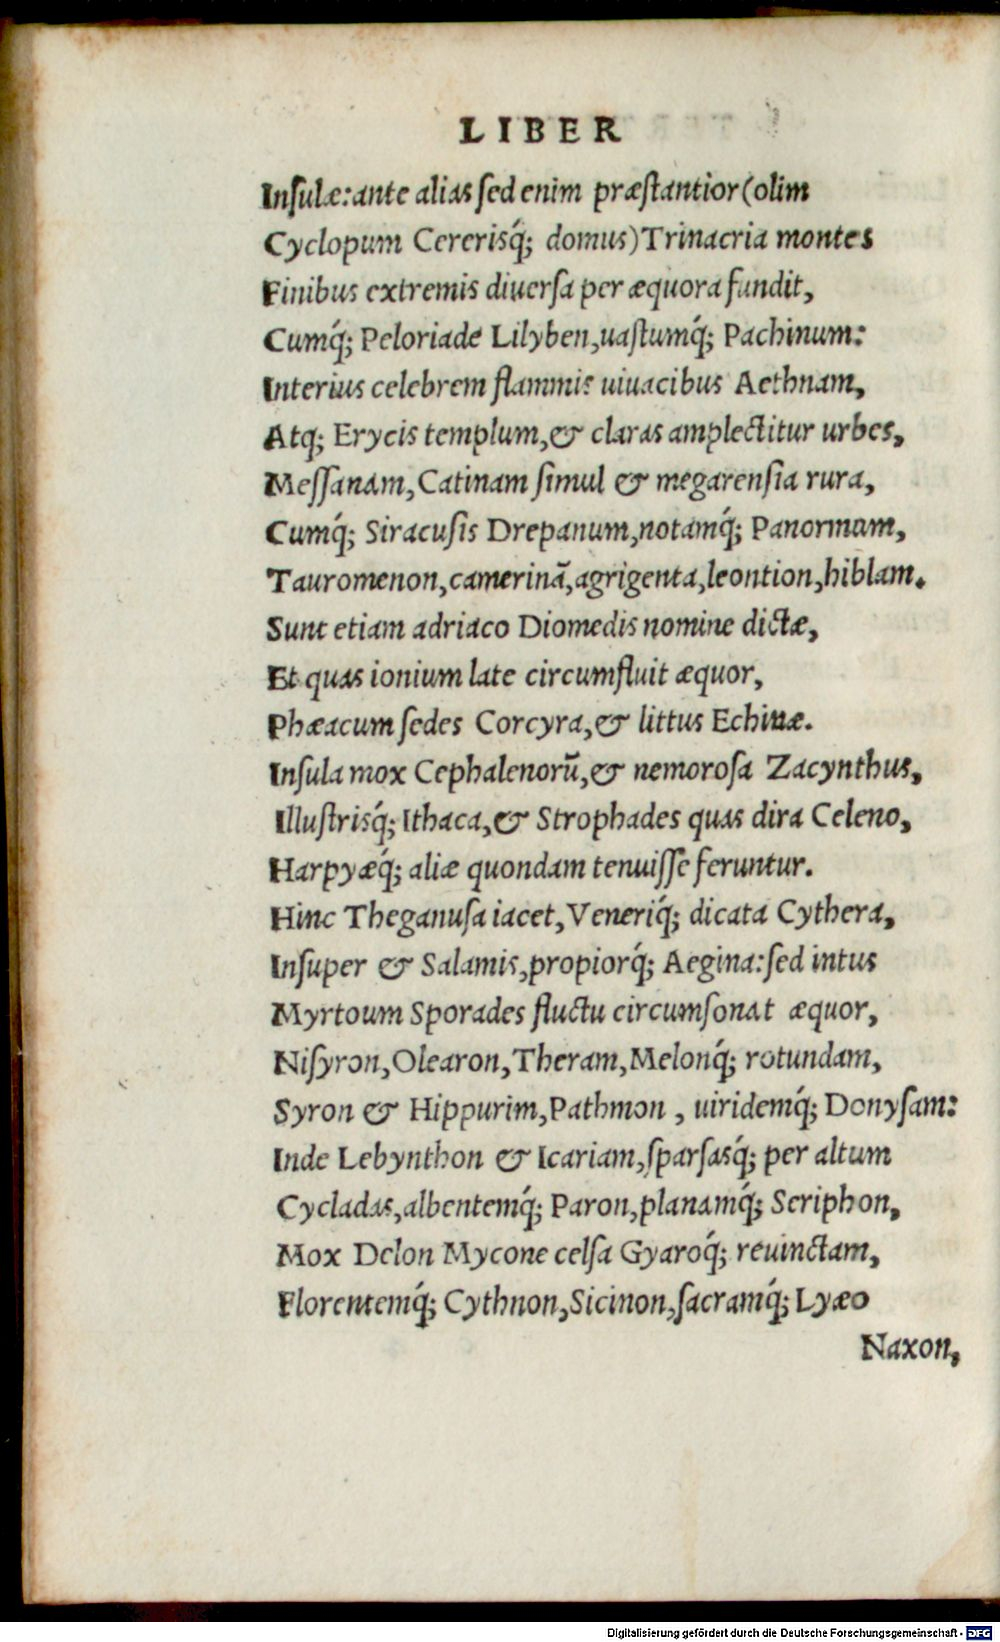 LIBER
Inſulæ: ante alias ſed enim præſtantior (olim
Cyclopum Cererisq́; domus) Trinacria montes
Finibus extremis diuerſa per æquora fundit,
Cumq́; Peloriade Lilyben, uaſtumq́; Pachinum:
Interius celebrem flammis uiuacibus Aethnam,
Atq; Erycis templum, & claras amplectitur urbes,
Meſſanam, Catinam ſimul & megarenſia rura,
Cumq́; Siracuſis Drepanum, notamq́; Panormum,
Tauromenon, camerinā, agrigenta, leontion, hiblam.
Sunt etiam adriaco Diomedis nomine dictæ,
Et quas ionium late circumfluit æquor,
Phæacum ſedes Corcyra, & littus Echinæ.
Inſula mox Cephalenorū, & nemoroſa Zacynthus,
Illuſtrisq́; Ithaca, & Strophades quas dira Celeno,
Harpyæq́; aliæ quondam tenuiſſe feruntur.
Hinc Theganuſa iacet, Veneriq́; dicata Cythera,
Inſuper & Salamis, propiorq́; Aegina: ſed intus
Myrtoum Sporades fluctu circumſonat æquor,
Niſyron, Olearon, Theram, Melonq́; rotundam,
Syron & Hippurim, Pathmon, uiridemq́; Donyſam:
Inde Lebynthon & Icariam, ſparſasq́; per altum
Cycladas, albentemq́; Paron, planamq́; Seriphon,
Mox Delon Mycone celſa Gyaroq́; reuinctam,
Florentemq́; Cythnon, Sicinon, ſacramq́; Lyæo
Naxon,
Digitalisierung gefördert durch die Deutsche Forschungsgemeinschaft - DFG